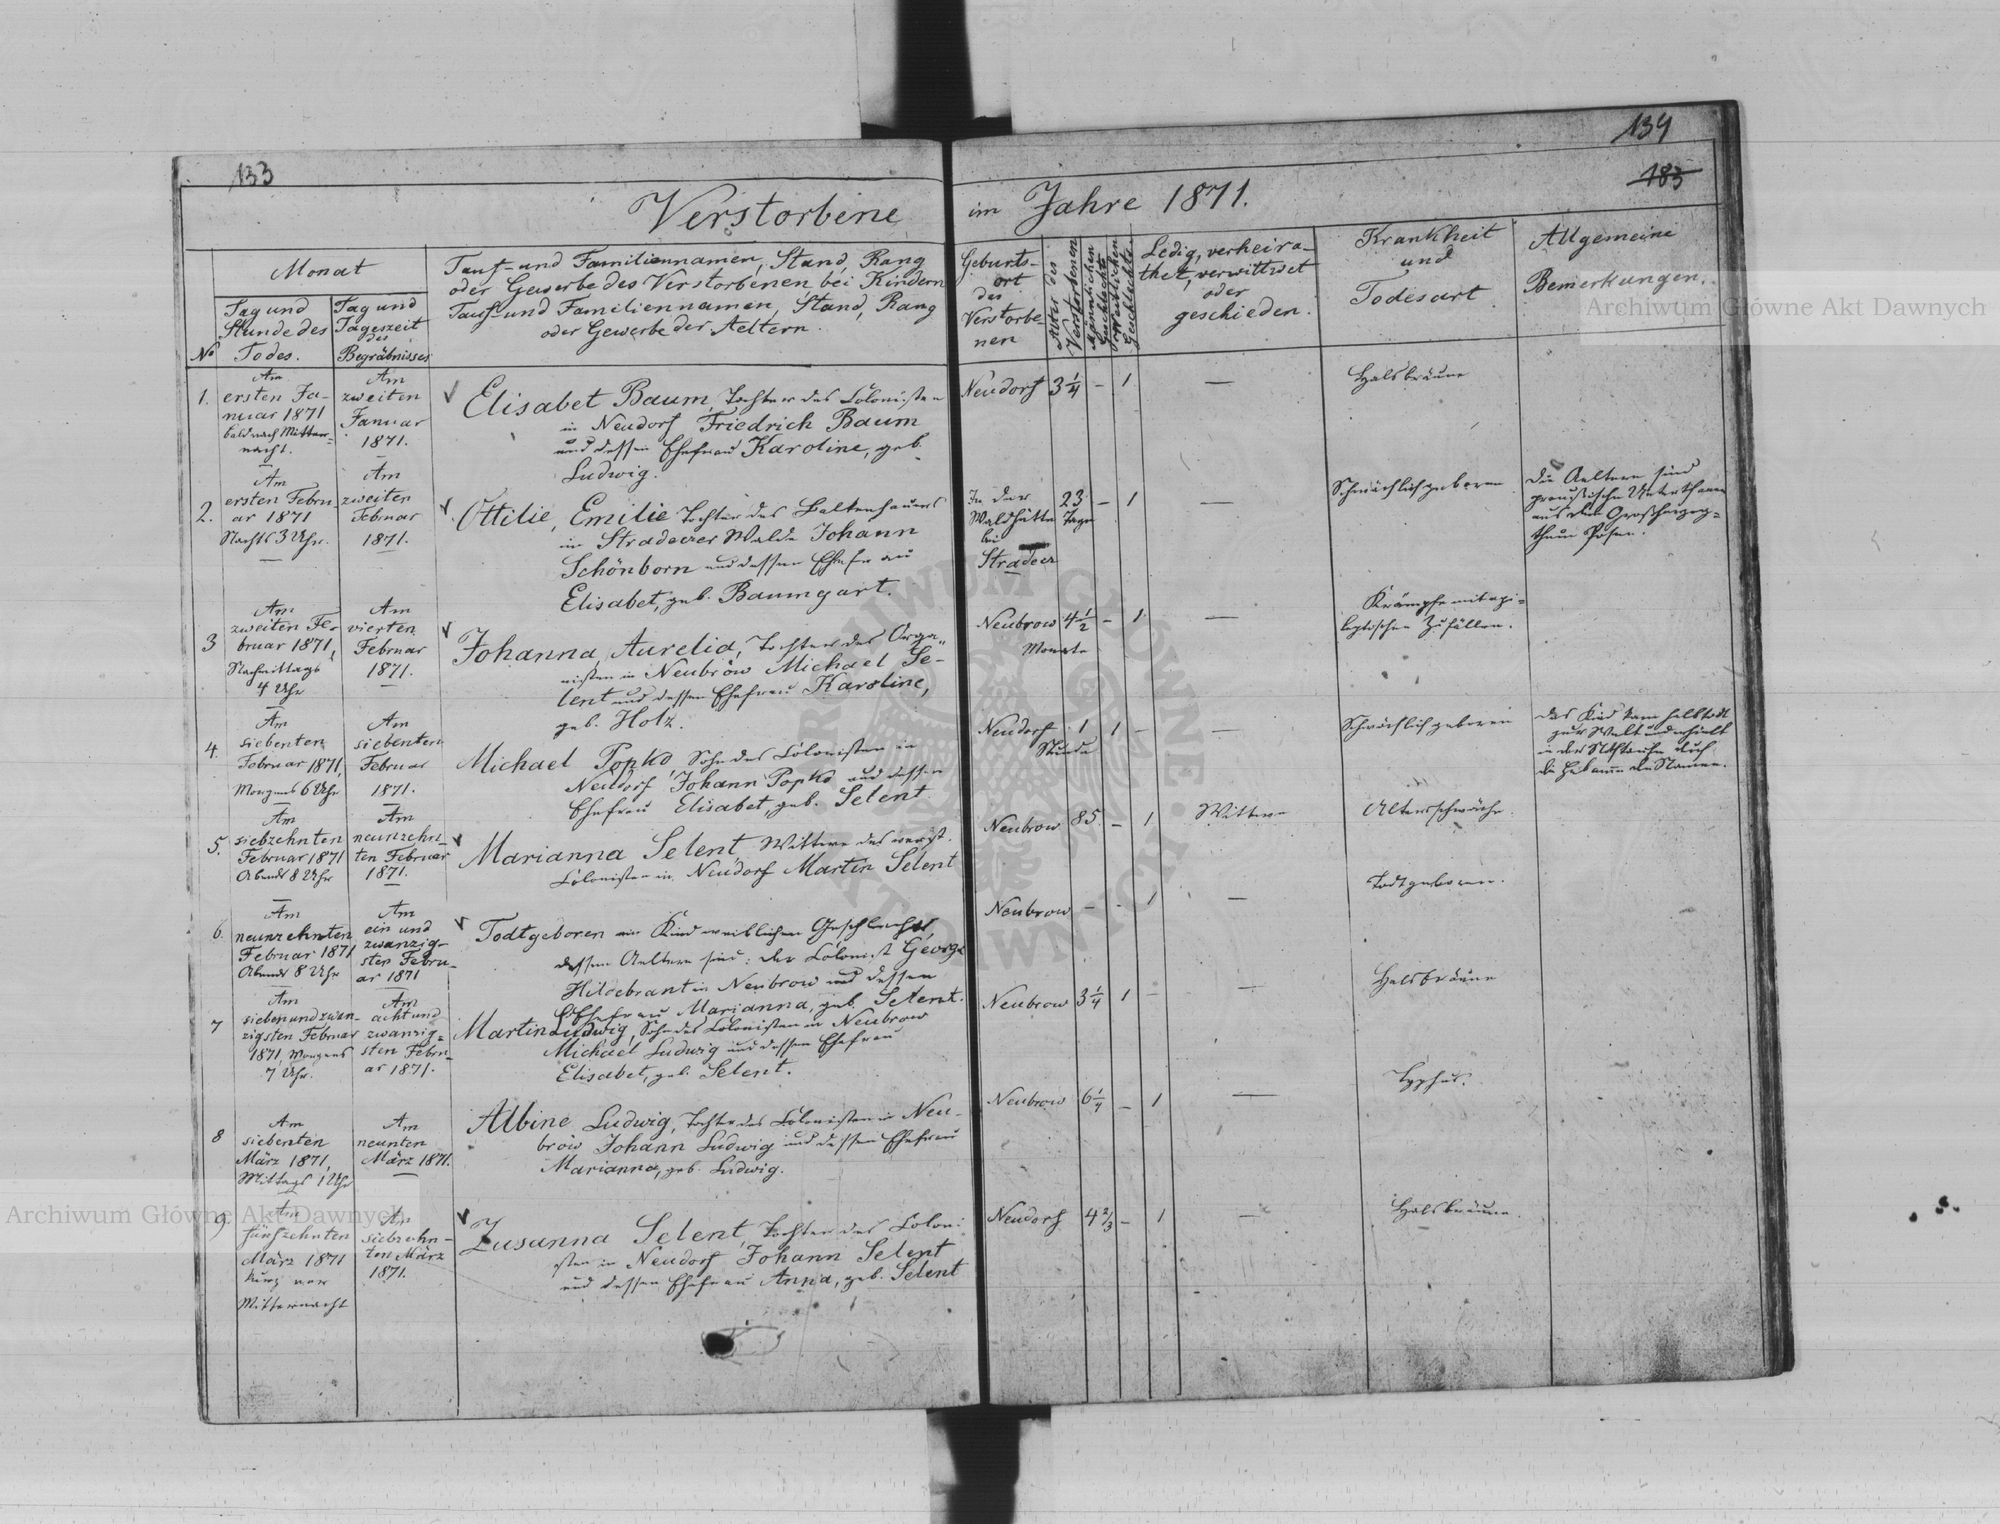 133
134
183
Verstorbene im Jahre 1871.
Monat
Tag und Stunde des Todes.
Tag und Tageszeit des Begräbnisses
No
Tauf- und Familiennamen, Stand, Rang
oder Gewerbe des Verstorbenen, bei Kindern
Tauf- und Familiennamen, Stand, Rang
oder Gewerbe der Aeltern.
Geburts-
ort
des
Verstorbe-
nen
Alter des Verstorbenen
Männlichen Geschlechts
Weiblichen Geschlechts
Ledig, verheira-
thet, verwittwet
oder
geschieden.
Krankheit
und
Todesart
Allgemeine
Bemerkungen.
1.
Am
ersten Ja-
nuar 1871
bald nach Mitter-
nacht.
Am
zweiten
Januar
1871.
Elisabet Baum, Tochter des Colonisten
in Neudorf Friedrich Baum
und dessen Ehefrau Karoline, geb.
Ludwig.
Neudorf 3 1/4 – 1 —
Halsbräune
2.
Am
ersten Febru
ar 1871
Nachts 3 Uhr.
Am
zweiten
Februar
1871.
Ottilie, Emilie Tochter des Balkenhauers
in Stradeczer Walde Johann
Schönborn und dessen Ehefrau
Elisabet, geb. Baumgart.
In der
Waldhütte
bei
Stradecz
23
Tage
– 1 —
Schwächlich geboren
Die Aeltern sind
preußische Unterthanen
aus dem Großherzog=
thum Posen.
3
Am
zweiten Fe-
bruar 1871,
Nachmittags
4 Uhr
Am
vierten
Februar
1871.
Johanna, Aurelia, Tochter des Orga-
nisten in Neubrow Michael Se-
lent und dessen Ehefrau Karoline,
geb. Holz.
Neubrow 4 1/2
Monate
– 1 —
Krämpfe mit epi=
leptischen Zufällen.
4.
Am
siebenten
Februar 1871,
Morgens 6 Uhr
Am
siebenten
Februar
1871.
Michael Popko, Sohn des Colonisten in
Neudorf, Johann Popko und dessen
Ehefrau Elisabet, geb. Selent
Neudorf 1
Stunde
1 – —
Schwächlich geboren
Das Kind kam halbtodt
zur Welt und erhielt
in der Nothtaufe durch
die Hebamme den Namen.
5.
Am
siebzehnten
Februar 1871
Abends 8 Uhr
Am
neunzehn-
ten Februar
1871.
Marianna Selent Wittwe des verst.
Colonisten in Neudorf Martin Selent
Neubrow 85. – 1 Wittwe
Altersschwäche
6.
Am
neunzehnten
Februar 1871
Abends 8 Uhr
Am
ein und
zwanzig-
sten Febru-
ar 1871
Todtgeboren ein Kind weiblichen Geschlechts
dessen Aeltern sind: der Colonist George
Hildebrant in Neubrow und dessen
Ehefrau Marianna, geb. Selent.
Neubrow – - 1 —
Todtgeboren.
7
Am
siebenundzwan-
zigsten Februar
1871, Morgens
7 Uhr.
Am
acht und
zwanzig=
sten Febru-
ar 1871.
Martin Ludwig, Sohn des Colonisten in Neubrow
Michael Ludwig und dessen Ehefrau
Elisabet, geb. Selent.
Neubrow 3 1/4 1 - —
Halsbräune
8
Am
siebenten
März 1871,
Mittags 1 Uhr
Am
neunten
März 1871.
Albine Ludwig, Tochter des Colonisten in Neu-
brow Johann Ludwig und dessen Ehefrau
Marianna, geb. Ludwig.
Neubrow 6 1/4 – 1 —
Typhus.
9.
Am
fünfzehnten
März 1871
kurz vor
Mitternacht
Am
siebzehn-
ten März
1871.
Zusanna Selent, Tochter des Coloni-
sten in Neudorf Johann Selent
und dessen Ehefrau Anna, geb. Selent
Neudorf 4 2/3 – 1 —
Halsbräune.
Archiwum Główne Akt Dawnych
Archiwum Główne Akt Dawnych
ARCHIWUM GŁÓWNE AKT DAWNYCH